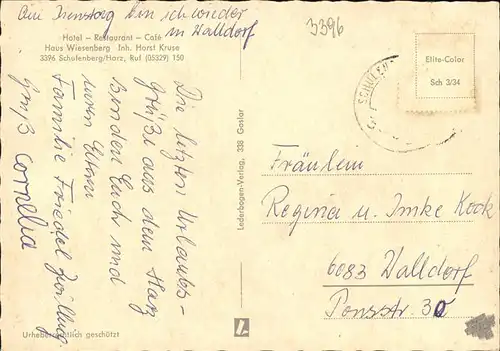 Am Dienstag bin ich wieder
in Walldorf
3396
Hotel – Restaurant – Café
Haus Wiesenberg Inh. Horst Kruse
3396 Schulenberg/Harz, Ruf (05329) 150
Die letzten Urlaubs-
grüße aus dem Harz
senden Euch und
euren Eltern
Familie Friedel
Gruß Cornelia
Urheberrechtlich geschützt
Lederbogen-Verlag, 338 Goslar
Elite-Color
Sch 3/34
Fräulein
Regina u. Imke Kook
6083 Walldorf
Ponsstr. 30